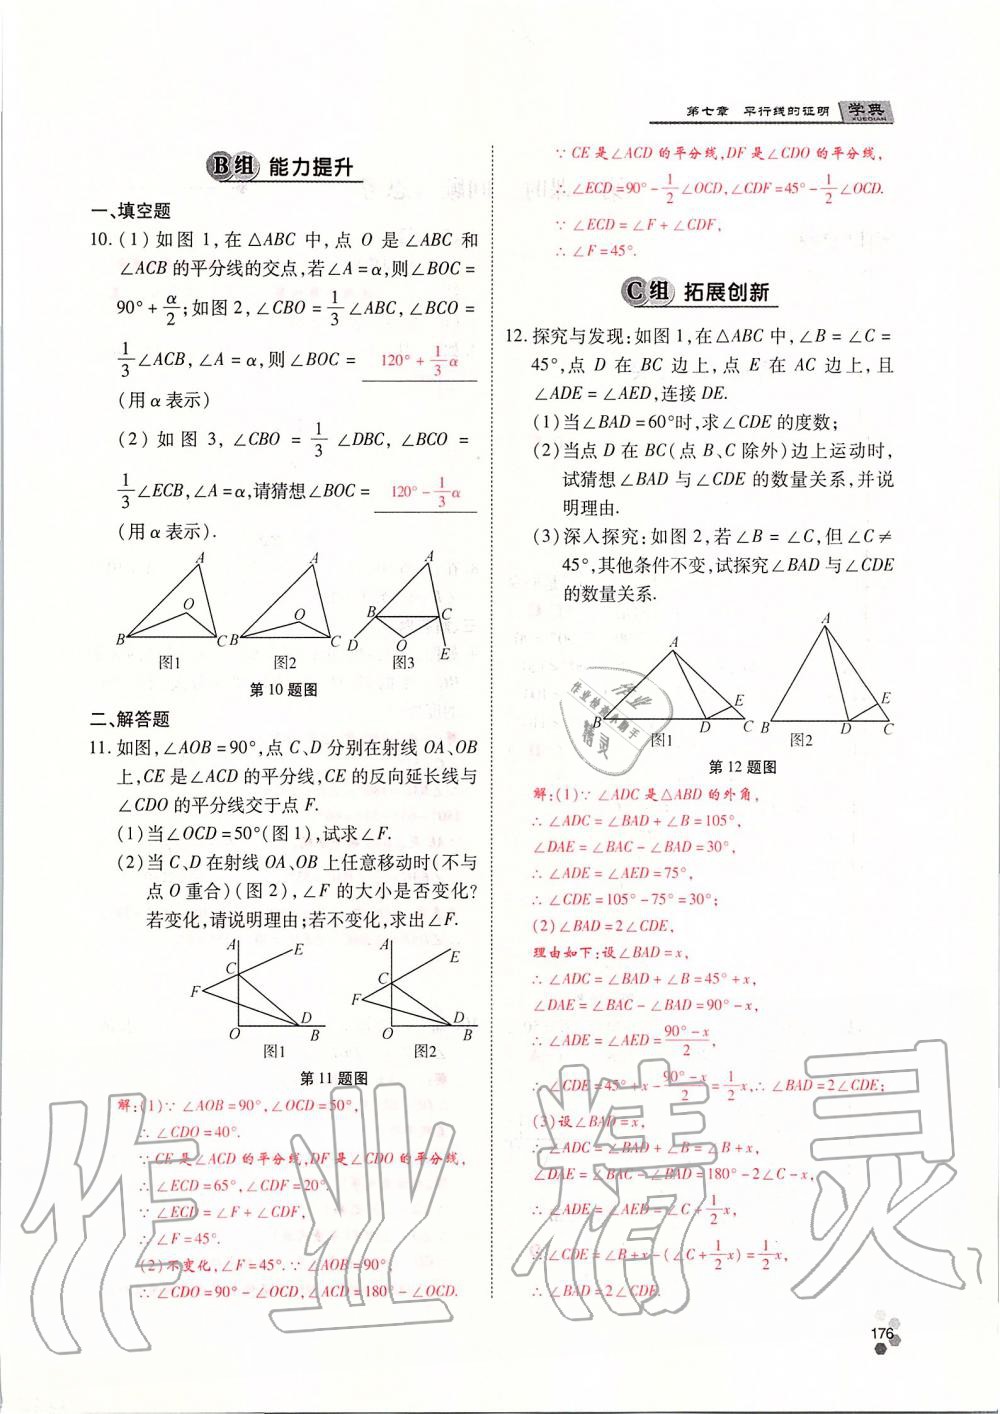 第七章 平行线的证明 学典
XUEDIAN
B组 能力提升
一、填空题
10.(1)如图1,在△ABC中,点O是∠ABC和
∠ACB的平分线的交点,若∠A=α,则∠BOC=
90°+α/2;如图2,∠CBO=1/3∠ABC,∠BCO=
1/3∠ACB,∠A=α,则∠BOC= 120°+1/3α
(用α表示)
(2)如图3,∠CBO=1/3∠DBC,∠BCO=
1/3∠ECB,∠A=α,请猜想∠BOC= 120°-1/3α
(用α表示).
A
O
B C
图1
A
O
B C
图2
A
B C
D O E
图3
第10题图
二、解答题
11.如图,∠AOB=90°,点C、D分别在射线OA、OB
上,CE是∠ACD的平分线,CE的反向延长线与
∠CDO的平分线交于点F.
(1)当∠OCD=50°(图1),试求∠F.
(2)当C、D在射线OA、OB上任意移动时(不与
点O重合)(图2),∠F的大小是否变化?
若变化,请说明理由;若不变化,求出∠F.
A E
C
F
D
O B
图1
A E
C
F
D
O B
图2
第11题图
解:(1)∵∠AOB=90°,∠OCD=50°,
∴∠CDO=40°.
∵CE是∠ACD的平分线,DF是∠CDO的平分线,
∴∠ECD=65°,∠CDF=20°.
∵∠ECD=∠F+∠CDF,
∴∠F=45°.
(2)不变化,∠F=45°.∵∠AOB=90°,
∴∠CDO=90°-∠OCD,∠ACD=180°-∠OCD.
∵CE是∠ACD的平分线,DF是∠CDO的平分线,
∴∠ECD=90°-1/2∠OCD,∠CDF=45°-1/2∠OCD.
∵∠ECD=∠F+∠CDF,
∴∠F=45°.
C组 拓展创新
12.探究与发现:如图1,在△ABC中,∠B=∠C=
45°,点D在BC边上,点E在AC边上,且
∠ADE=∠AED,连接DE.
(1)当∠BAD=60°时,求∠CDE的度数;
(2)当点D在BC(点B、C除外)边上运动时,
试猜想∠BAD与∠CDE的数量关系,并说
明理由.
(3)深入探究:如图2,若∠B=∠C,但∠C≠
45°,其他条件不变,试探究∠BAD与∠CDE
的数量关系.
A
E
B D C
图1
A
E
B D C
图2
第12题图
解:(1)∵∠ADC是△ABD的外角,
∴∠ADC=∠BAD+∠B=105°,
∠DAE=∠BAC-∠BAD=30°,
∴∠ADE=∠AED=75°,
∴∠CDE=105°-75°=30°;
(2)∠BAD=2∠CDE,
理由如下:设∠BAD=x,
∴∠ADC=∠BAD+∠B=45°+x,
∠DAE=∠BAC-∠BAD=90°-x,
∴∠ADE=∠AED=(90°-x)/2,
∴∠CDE=45°+x-(90°-x)/2=1/2x,∴∠BAD=2∠CDE;
(3)设∠BAD=x,
∴∠ADC=∠BAD+∠B=∠B+x,
∠DAE=∠BAC-∠BAD=180°-2∠C-x,
∴∠ADE=∠AED=∠C+1/2x,
∴∠CDE=∠B+x-(∠C+1/2x)=1/2x,
∴∠BAD=2∠CDE.
作业
作业检查小助手
精灵
作业精灵
176